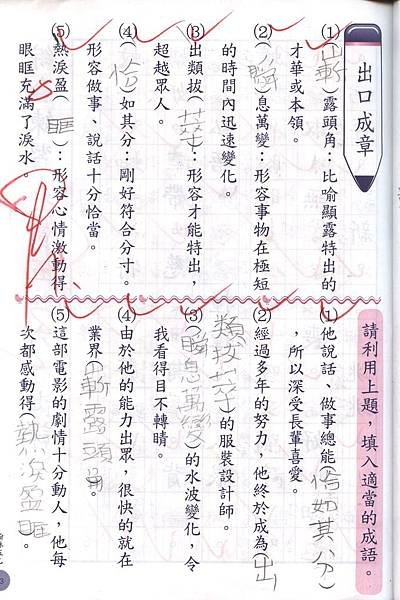 出口成章
(1)(嶄)露頭角：比喻顯露特出的
才華或本領。
(2)(瞬)息萬變：形容事物在極短
的時間內迅速變化。
(3)出類拔(萃)：形容才能特出，
超越眾人。
(4)(恰)如其分：剛好符合分寸。
形容做事、說話十分恰當。
(5)熱淚盈(眶)：形容心情激動得
眼眶充滿了淚水。
請利用上題，填入適當的成語。
(1)他說話、做事總能(恰如其分)
，所以深受長輩喜愛。
(2)經過多年的努力，他終於成為(出
類拔萃)的服裝設計師。
(3)(瞬息萬變)的水波變化，令
我看得目不轉睛。
(4)由於他的能力出眾，很快的就在
業界(嶄露頭角)。
(5)這部電影的劇情十分動人，他每
次都感動得(熱淚盈眶)。